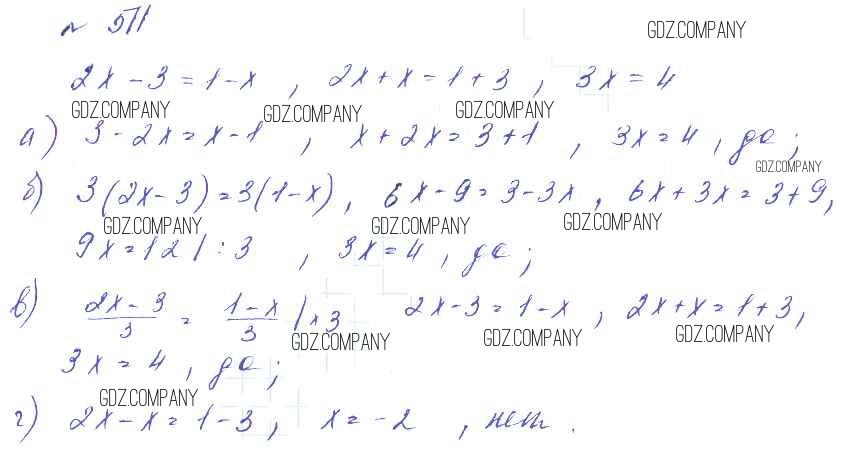 № 511
GDZ.COMPANY
2x - 3 = 1 - x , 2x + x = 1 + 3 , 3x = 4
GDZ.COMPANY GDZ.COMPANY GDZ.COMPANY
а) 3 - 2x = x - 1 , x + 2x = 3 + 1 , 3x = 4 , да ;
GDZ.COMPANY
б) 3(2x - 3) = 3(1 - x) , 6x - 9 = 3 - 3x , 6x + 3x = 3 + 9 ,
GDZ.COMPANY GDZ.COMPANY GDZ.COMPANY
9x = 12 | : 3 , 3x = 4 , да ;
в) (2x - 3)/3 = (1 - x)/3 | × 3 2x - 3 = 1 - x , 2x + x = 1 + 3 ,
GDZ.COMPANY GDZ.COMPANY GDZ.COMPANY
3x = 4 , да ;
GDZ.COMPANY
г) 2x - x = 1 - 3 , x = -2 , нет .